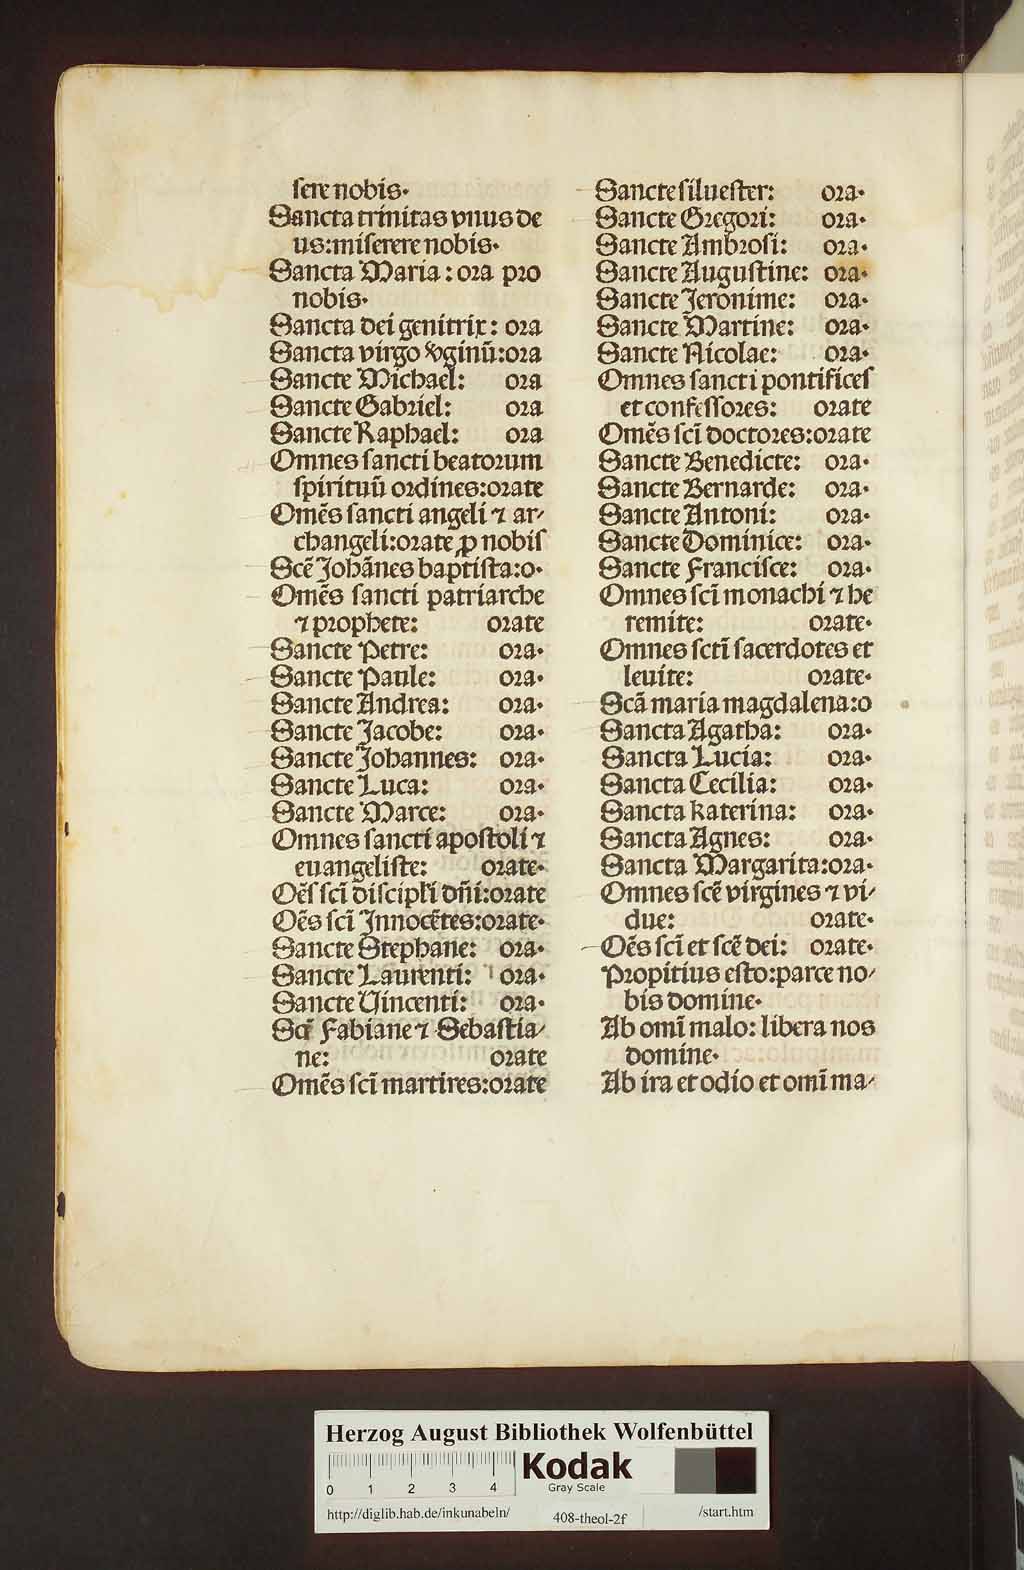 sere nobis.
Sancta trinitas vnus de
us: miserere nobis.
Sancta Maria: ora pro
nobis.
Sancta dei genitrix: ora
Sancta virgo v̾ginū: ora
Sancte Michael: ora
Sancte Gabriel: ora
Sancte Raphael: ora
Omnes sancti beatorum
spirituū ordines: orate
Omēs sancti angeli ⁊ ar-
changeli: orate ꝓ nobis
Scē Johānes baptista: o.
Omēs sancti patriarche
⁊ prophete: orate
Sancte Petre: ora.
Sancte Paule: ora.
Sancte Andrea: ora.
Sancte Jacobe: ora.
Sancte Johannes: ora.
Sancte Luca: ora.
Sancte Marce: ora.
Omnes sancti apostoli ⁊
euangeliste: orate.
Oēs scī discipl'i dn̄i: orate
Oēs scī Innocētes: orate.
Sancte Stephane: ora.
Sancte Laurenti: ora.
Sancte Vincenti: ora.
Fabiane ⁊ Sebastia-
ne: orate
Omēs scī martires: orate
Sancte siluester: ora.
Sancte Gregori: ora.
Sancte Ambrosi: ora.
Sancte Augustine: ora.
Sancte Jeronime: ora.
Sancte Martine: ora.
Sancte Nicolae: ora.
Omnes sancti pontifices
et confessores: orate
Omēs scī doctores: orate
Sancte Benedicte: ora.
Sancte Bernarde: ora.
Sancte Antoni: ora.
Sancte Dominice: ora.
Sancte Francisce: ora.
Omnes scī monachi ⁊ he
remite: orate.
Omnes sctī sacerdotes et
leuite: orate.
Scā maria magdalena: o
Sancta Agatha: ora.
Sancta Lucia: ora.
Sancta Cecilia: ora.
Sancta katerina: ora.
Sancta Agnes: ora.
Sancta Margarita: ora.
Omnes scē virgines ⁊ vi-
due: orate.
Oēs scī et scē dei: orate.
Propitius esto: parce no-
bis domine.
Ab omī malo: libera nos
domine.
Ab ira et odio et omī ma-
Herzog August Bibliothek Wolfenbüttel
0 1 2 3 4
Kodak
Gray Scale
http://diglib.hab.de/inkunabeln/ 408-theol-2f /start.htm